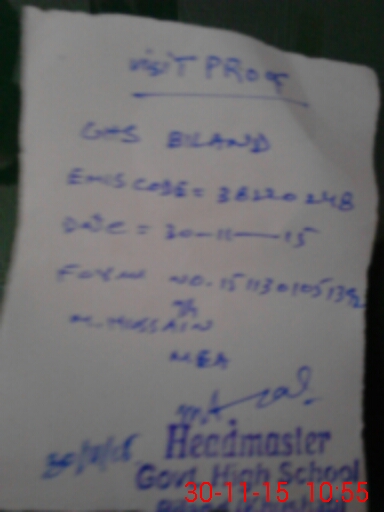 visiT PROof
GHS BILAND
EMIS CODE = 38220248
DATE = 30-11-15
FORM NO. 151130105139
M. HUSSAIN
MEA
30/11/15
Headmaster
Govt. High School
30-11-15 10:55